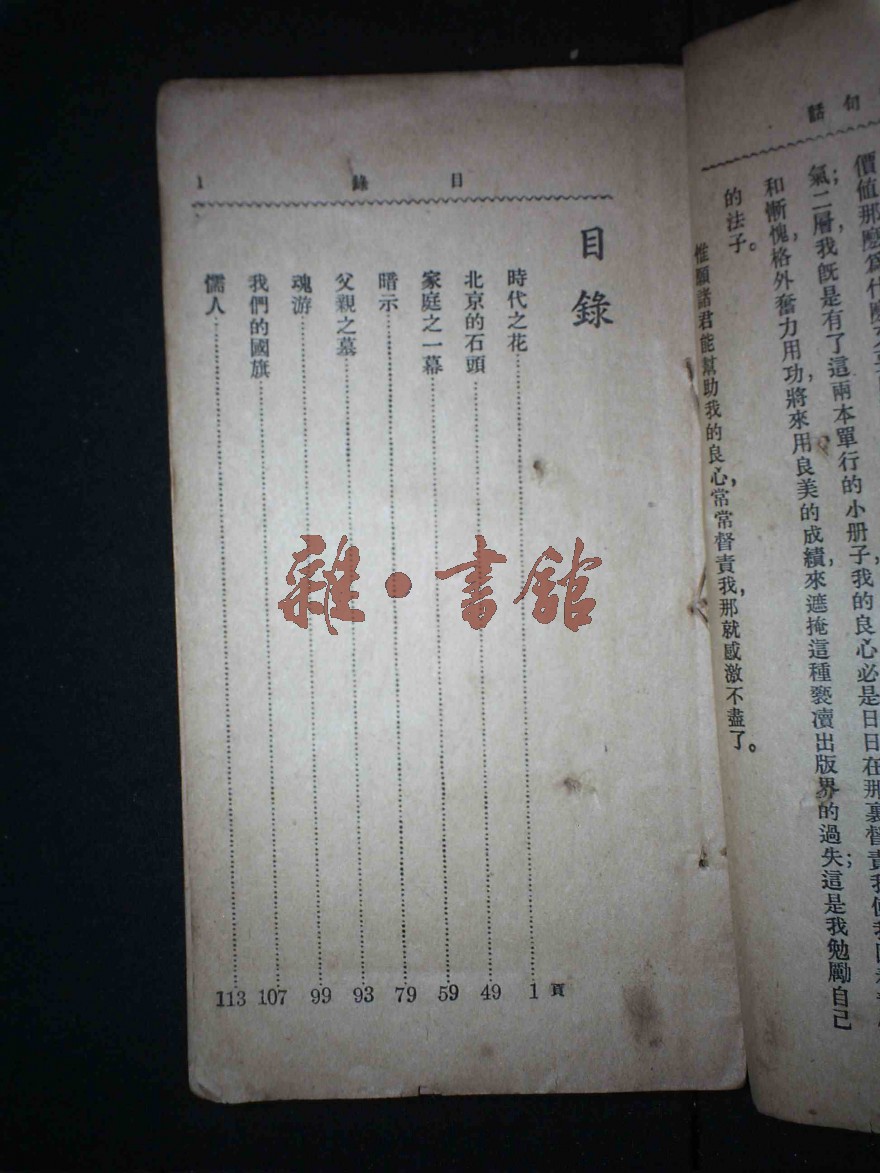 句話
價值那麼爲什麼
氣;二層,我旣是有了這兩本單行的小册子,我的良心必是日日在那裏督責我,
和慚愧,格外奮力用功,將來用良美的成績,來遮掩這種褻瀆出版界的過失;這是我勉勵自己
的法子。
惟願諸君能幫助我的良心,常常督責我,那就感激不盡了。
目錄 1
目錄
時代之花 1頁
北京的石頭 49
家庭之一幕 59
暗示 79
父親之墓 93
魂游 99
我們的國旗 107
懦人 113
雜·書館